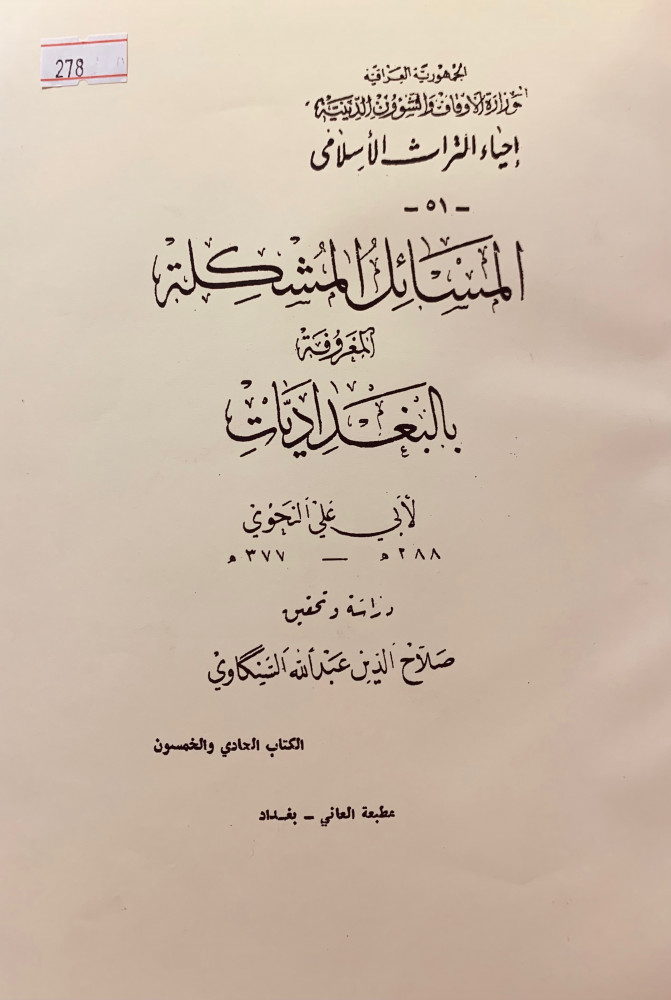 278
الجمهورية العراقية
وزارة الأوقاف والشؤون الدينية
إحياء التراث الإسلامي
- ٥١ -
المسَائِل المُشْكِلة
المَعْرُوفَة
بالبَغْدَاديَّاتِ
لأبي عَلي النَحَوي
٢٨٨ هـ — ٣٧٧ هـ
دراسة وتحقيق
صَلَاح الدِين عَبْدالله السَّنكَاوي
الكتاب الحادي والخمسون
مطبعة العاني - بغداد